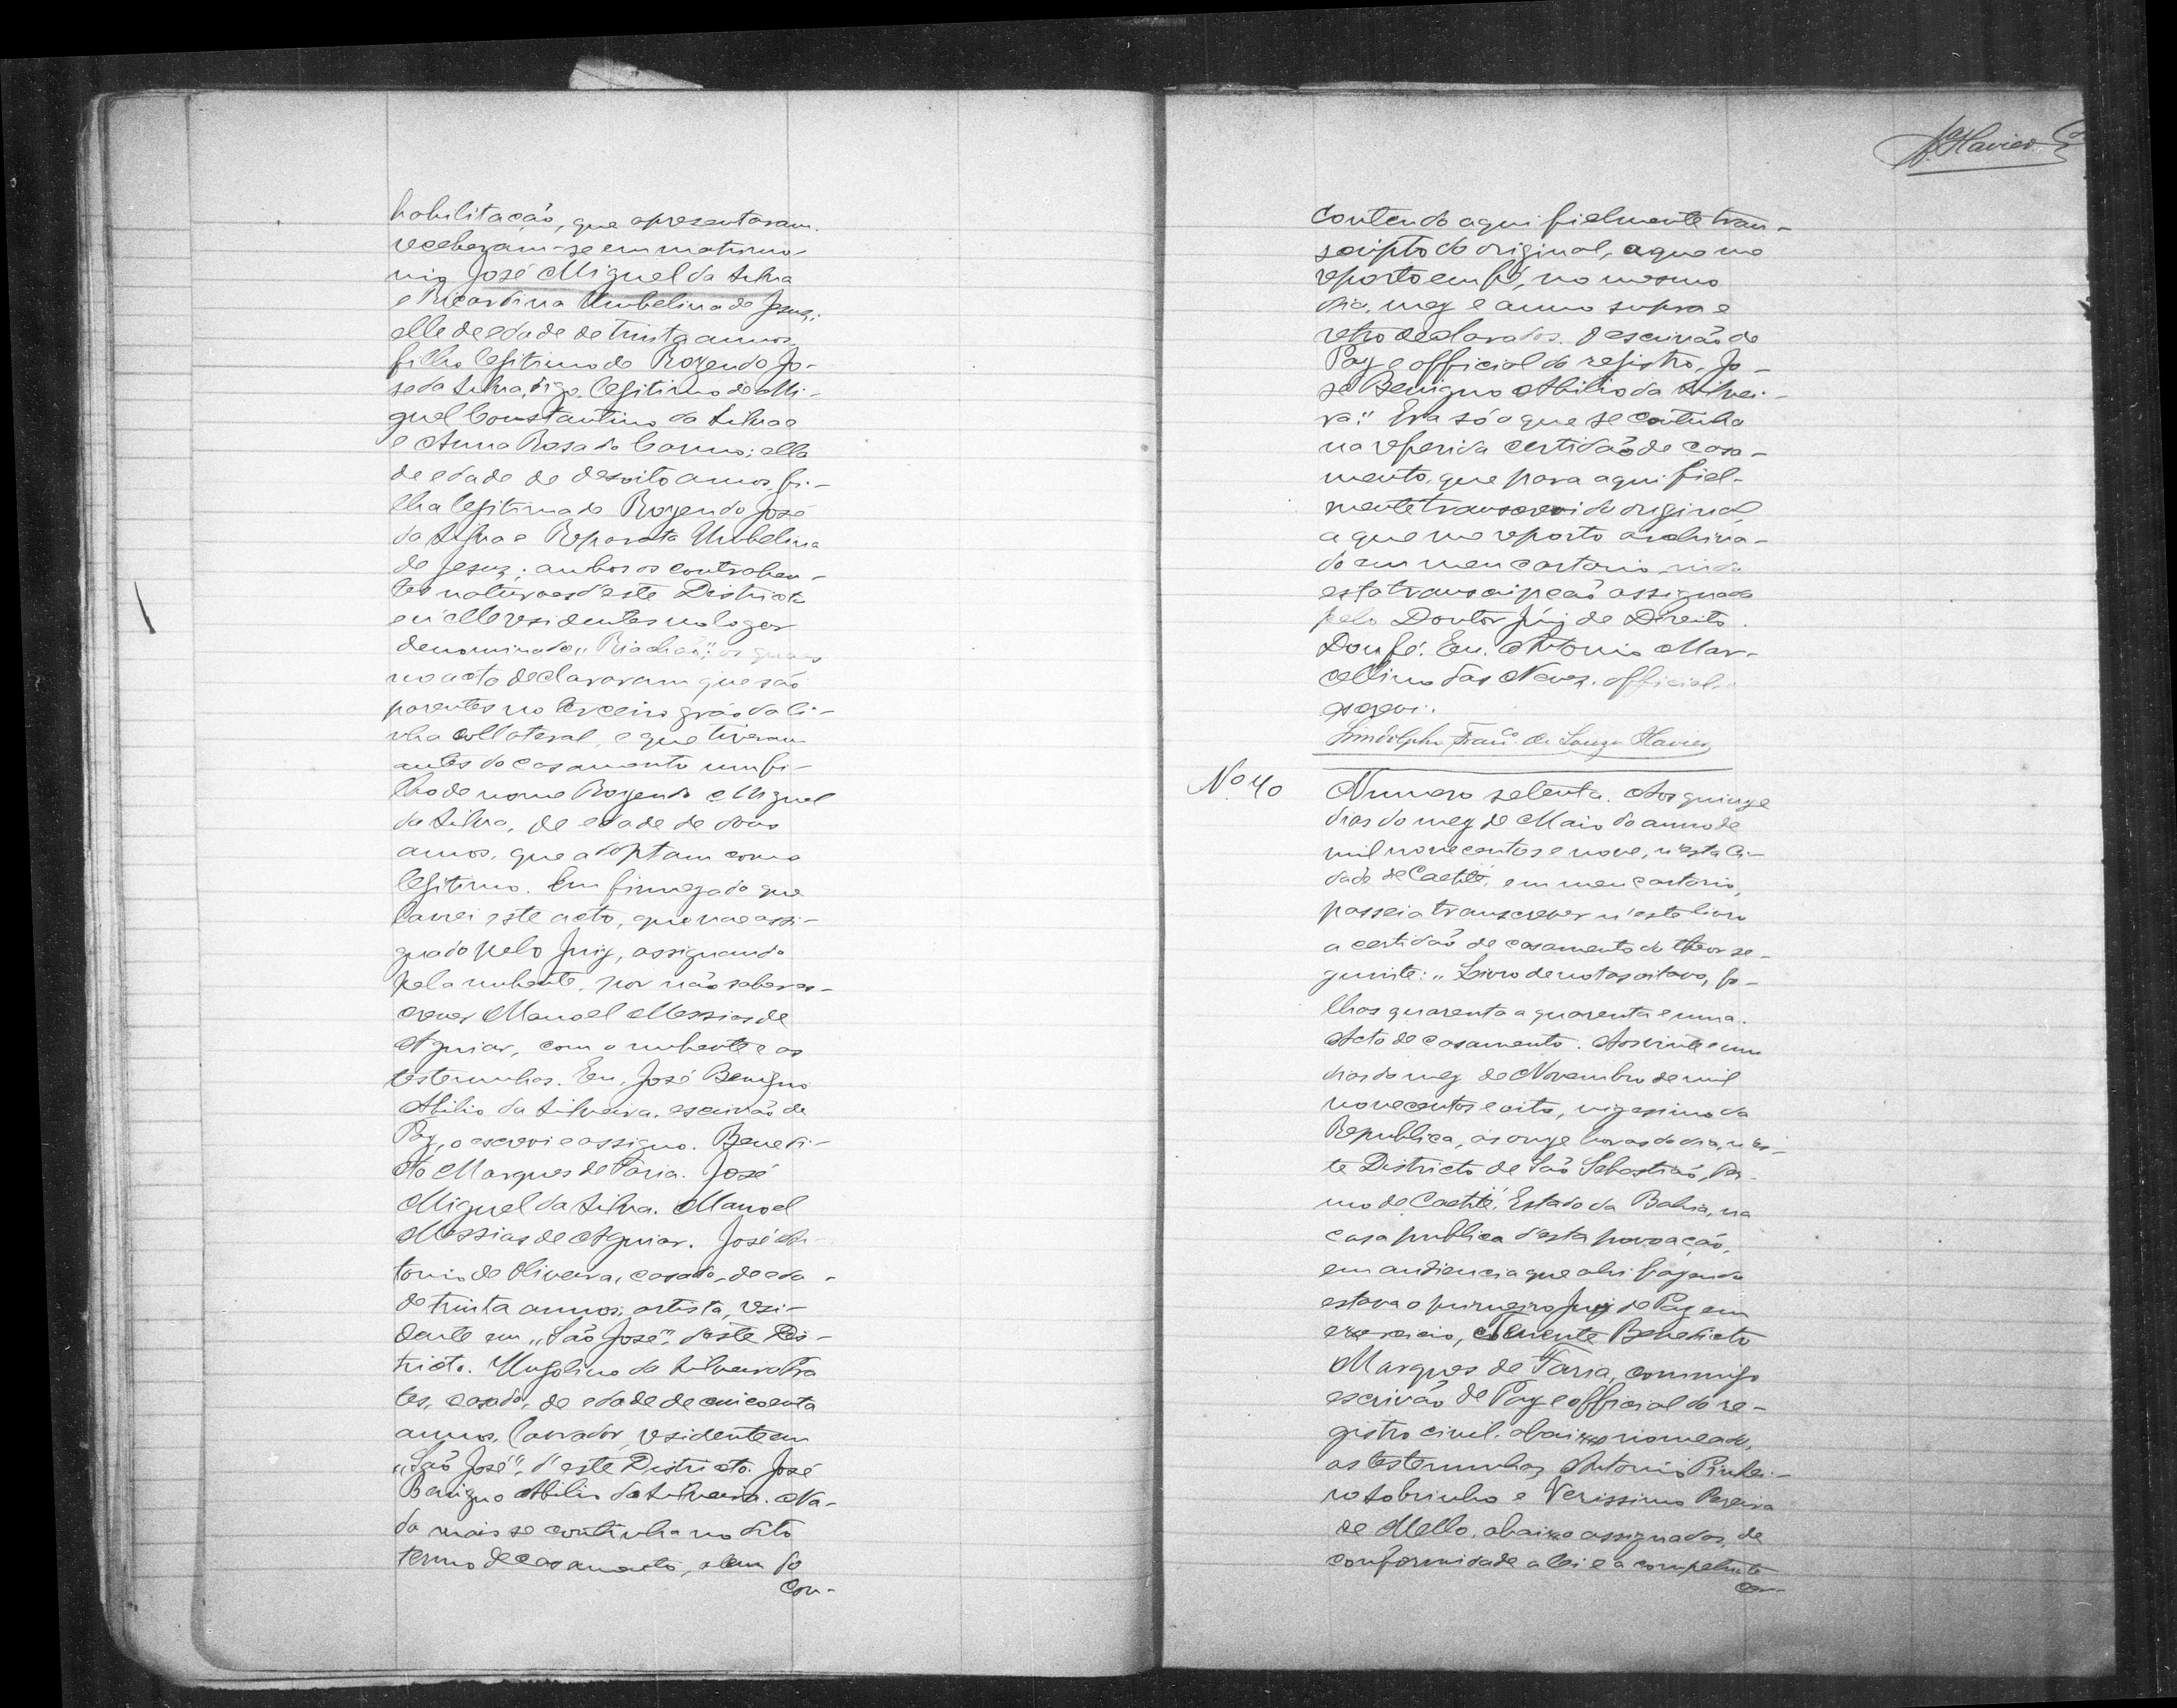 habilitação, que apresentaram.
receberam-se em matrimo-
nio José Miguel da Silva
e Ricardina Umbelina de Jesuz;
elle de edade de trinta annos,
filho legitimo de Rozendo Jo-
se da Silva, digo, legitimo de Mi-
guel Constantino da Silva e
e Anna Rosa do Carmo; ella
de edade de desoito annos, fi-
lha legitima de Rozendo José
da Silva e Reparata Umbelina
de Jesuz; ambos os contrahen-
tes naturaes d'este Districto
e n'elle residentes no logar
denominado "Riachão"; os quaes
no acto declararam que são
parentes no terceiro gráo da li-
nha collateral, e que tiveram
antes do casamento um fi-
lho de nome Rozendo Miguel
da Silva, de edade de dous
annos, que adoptam como
legitimo. Em firmeza do que
lavrei este acto, que vae assi-
gnado pelo Juiz, assignando
pela nubente, por não saber es-
crever Manoel Messias de
Aguiar, com o nubente e as
testemunhas. Eu, José Benigno
Abilio da Silveira, escrivão de
Paz, o escrevi e assigno. Benedi-
cto Marques de Faria. José
Miguel da Silva. Manoel
Messias de Aguiar. José An-
tonio de Oliveira, casado, de eda-
de trinta annos, artista, resi-
dente em "São José", d'este Dis-
tricto. Hugolino da Silveira Pra
tes, casado, de edade de cincoenta
annos, lavrador, residente em
"São José", d'este Districto. José
Benigno Abilio da Silveira. Na-
da mais se continha no dito
termo de casamento, alem do
con-
contendo aqui fielmente tran-
scripto do original, a que me
reporto em fé, no mesmo
dia, mez e anno supra e
retro declarados. O escrivão de
Paz e official do registro, Jo-
sé Benigno Abilio da Silvei-
ra." Era só o que se continha
na referida certidão de casa-
mento, que para aqui fiel-
mente transcrevi do original,
a que me reporto archiva-
do em meu cartorio, indo
esta transcripção assignada
pelo Doutor Juiz de Direito.
Dou fé. Eu, Antonio Mar-
cellino das Neves, official,
escrevi.
Lindolpho Franco. de Souza Xavier
No. 40 Numero setenta. Aos quinze
dias do mez de Maio do anno de
mil novecentos e nove, n'esta Ci-
dade de Caetité, em meu cartorio,
passei a transcrever n'este livro
a certidão de casamento do theor se-
guinte: "Livro de notas oitavo, fo-
lhas quarenta a quarenta e uma.
Acto de casamento. Aos vinte e um
dias do mez de Novembro de mil
novecentos e oito, vigesimo da
Republica, ás onze horas do dia, n'es-
te Districto de São Sebastião, Ter-
mo de Caetité, Estado da Bahia, na
casa publica d'esta povoação,
em audiencia que ahi fazendo
estava o primeiro Juiz de Paz em
exercicio, Tenente Benedicto
Marques de Faria, commigo
escrivão de Paz e official do re-
gistro civil, abaixo nomeado,
as testemunhas Antonio Pinhei-
ro Sobrinho e Verissimo Pereira
de Mello, abaixo assignados, de
conformidade a lei e a competente